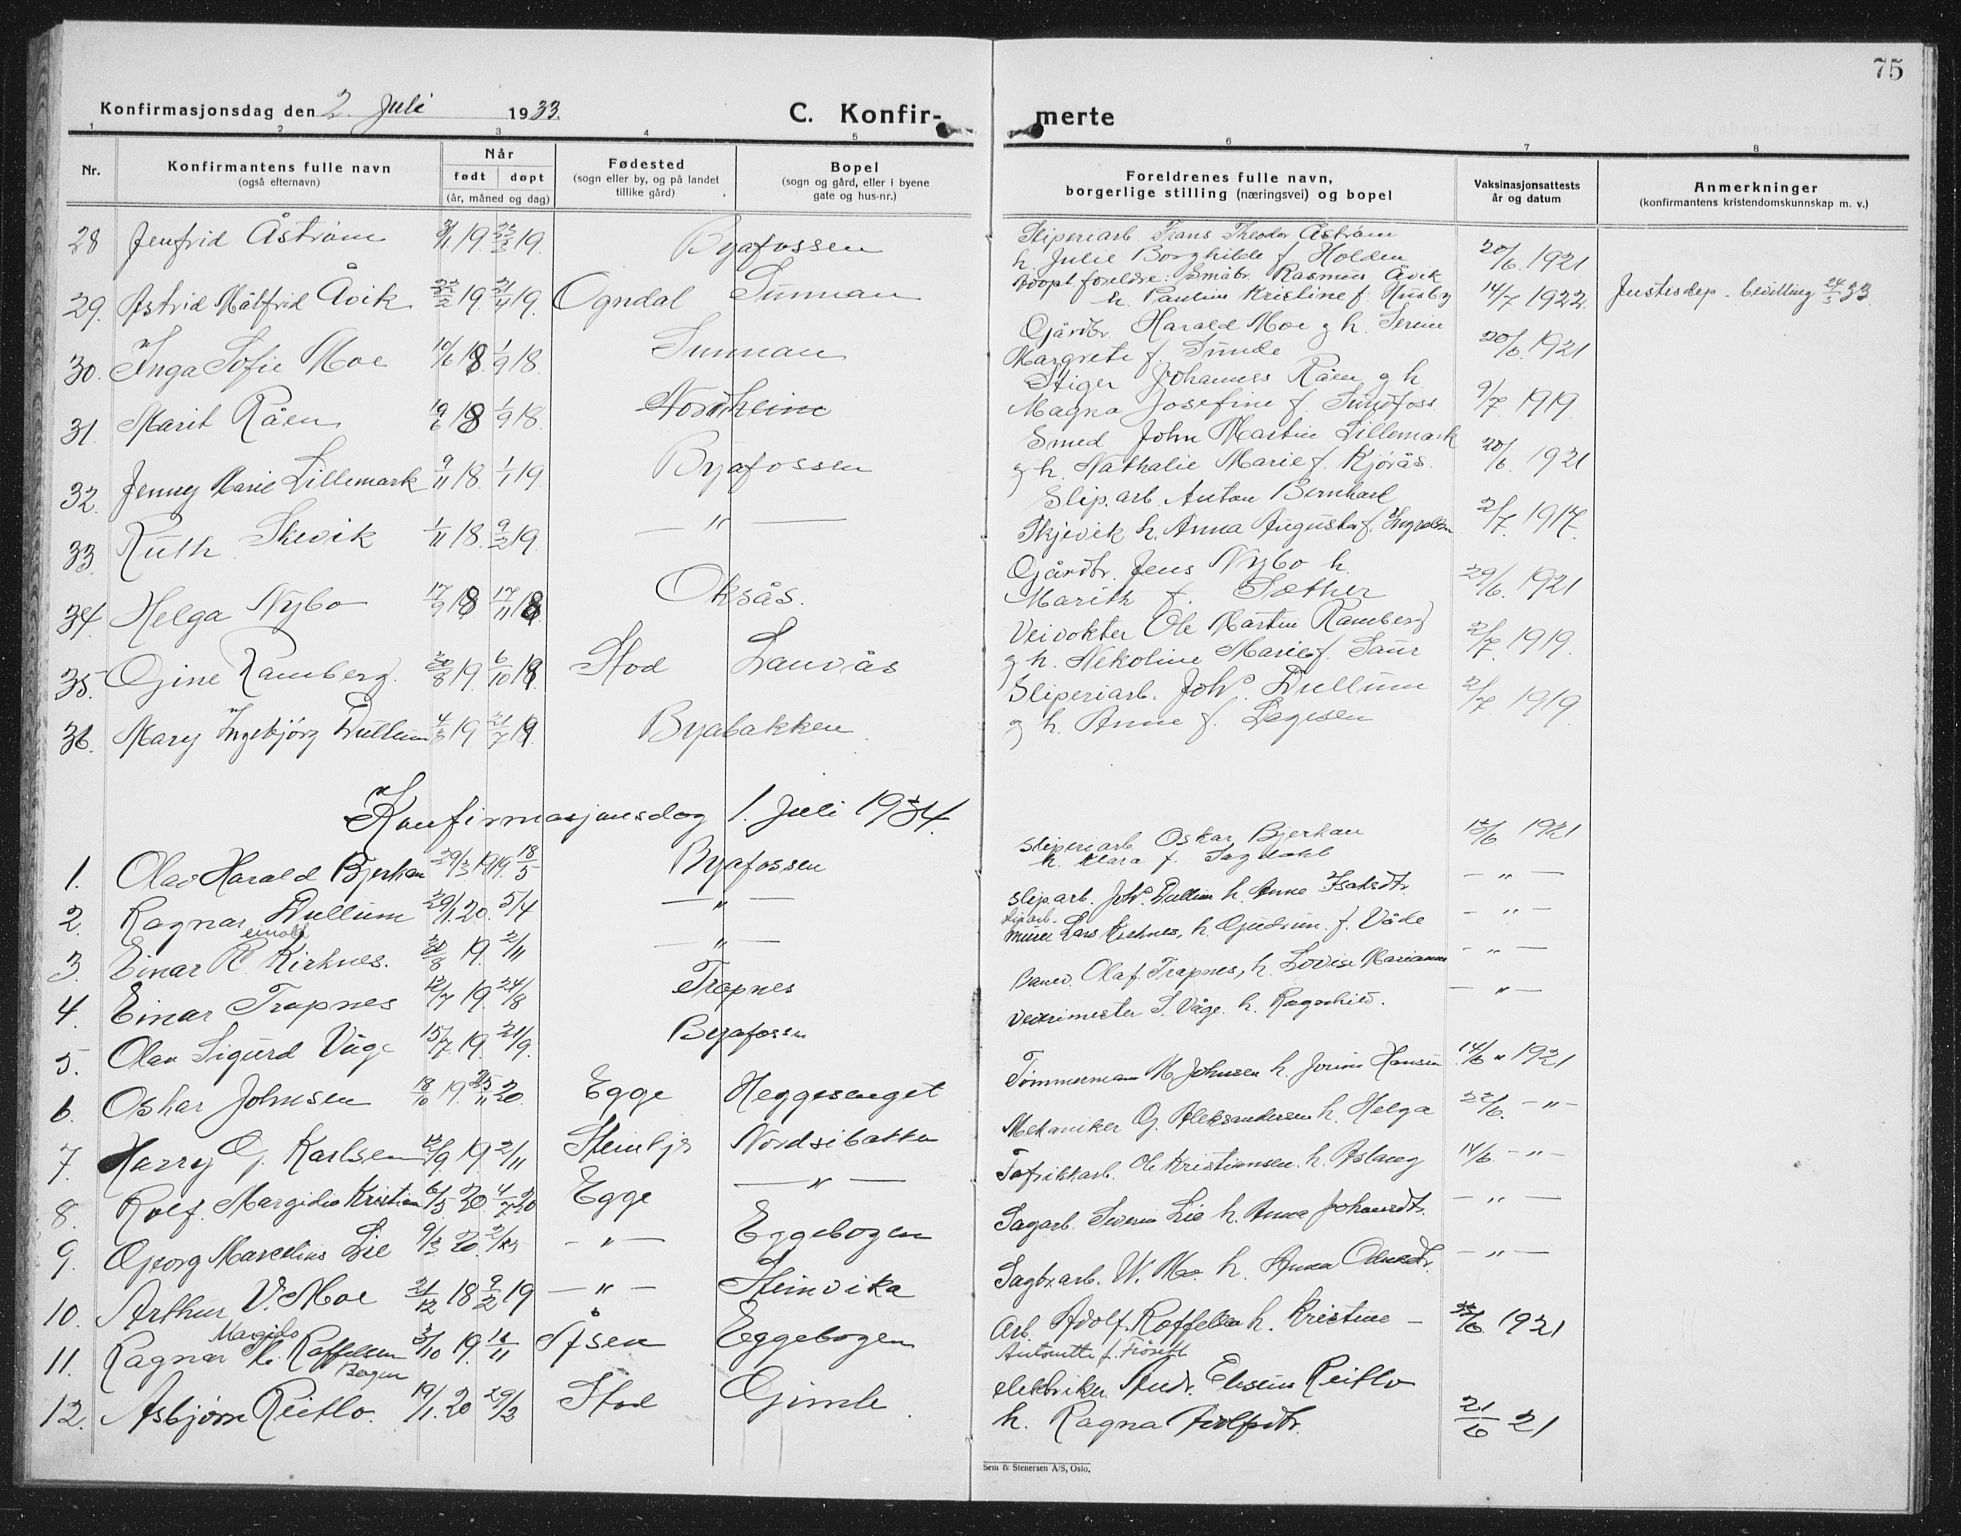 75
Konfirmasjonsdag den 2. Juli 1933. C. Konfirmerte
1 2 3 4 5 6 7 8
Nr. Konfirmantens fulle navn (også efternavn) Når født døpt (år, måned og dag) Fødested (sogn eller by, og på landet tillike gård) Bopel (sogn og gård, eller i byene gate og hus-nr.) Foreldrenes fulle navn, borgerlige stilling (næringsvei) og bopel Vaksinasjonsattests år og datum Anmerkninger (konfirmantens kristendomskunnskap m. v.)
28 Jenfrid Åstrøm 3/1 19. 23/3 19. Byafossen Sliperiarb. Frans Theodor Åstrøm h. Julie Borghilde f. Holden 20/6. 1921
29. Astrid Målfrid Åvik 22/2 19. 21/4 19. Ogndal Sunnan Adopt. foreldre: Småbr. Rasmus Åvik h. Pauline Kristine f. Husby 14/7 1922. Justisdep. bevilling 24/5 33
30. Inga Sofie Moe 10/6 18. 1/9 18. Sunnan Gårdbr. Harald Moe og h. Serine Margrete f. Sunde 20/6. 1921
31. Marit Råen 19/6 18 1/9 18. Nordheim Stiger Johannes Råen og h. Magna Josefine f. Sundfoss. 9/7. 1919.
32. Jenny Marie Lillemark 9/11 18. 1/1 19. Byafossen Smed John Martin Lillemark og h. Nathalie Marie f. Kjørås. 20/6. 1921
33. Ruth Skevik 1/11 18. 9/2 19. — " — Slip.arb. Anton Bernhard Skjevik h. Anna Augusta f. 2/7. 1917.
34. Helga Nybo 17/9 18 17/11 18 Oksås. Gårdbr. Jens Nybo h. Marith f. Sæther 29/6. 1921
35. Gine Ramberg. 30/8 19. 6/10 19 Stod Lauvås Veivokter Ole Martin Ramberg og h. Nekoline Marie f. Saur 2/7. 1919.
36. Mary Ingebjørg Dullum 4/3 19 21/7 19 Byabakken Sliperiarb. Johs. Dullum og h. Anne f. Lagesen 2/7 1919.
Konfirmasjonsdag 1. Juli 1934.
1. Olav Harald Bjerkan 29/3 1919. 18/5 Byafossen Sliperiarb. Oskar Bjerkan h. Klara f. 15/6 1921
2. Ragnar Dullum 29/1. 20. 5/4 — " — Sliparb. Johs. Dullum h. Anne Isaksdtr. — " —
3. Einar R. Kirknes. 30/8 19. 2/11 — " — Sliparb. murer Lars Kirknes, h. Gudrun f. Våde — " —
4. Einar Trapnes 12/7 19. 24/8 Trapnes Banev. Olaf Trapnes, h. Lovise Marianne — " —
5. Olav Sigurd Våge 15/7 19. 21/9. Byafossen S. Våge. h. Ragnhild. — " —
6. Oskar Johnsen 18/10 19. 25/11 20. Egge Heggesenget Tømmermann M. Johnsen h. Jorine Hansen 14/6 " 1921
7. Harry G. Karlsen 12/9 19 2/11 Steinkjer Nordsibakken Mekaniker G. Aleksandersen h. Helga 22/6. — " —
8. Rolf. Margido Kristian 6/5 20. 4/7 20 Egge — " — Fabrikkarb. Ole Kristiansen h. Aslaug 14/6. — " —
9. Georg Marcelius Lie 9/3 20. — " — Eggebogen Sagarb. Severin Lie h. Anna Johansdtr. — " —
10. Arthur V. Moe 21/12 18 9/2 19 — " — Steinvika Sagbr.arb. W. Moe h. Anna — " —
11. Ragnar Magido K. Raffelsen Bogen 3/10 19. Åsen Eggebogen Arb. Adolf Roffelsen h. Kristine — Antonette f. 1921
12. Asbjørn Reitlo. 19/1. 20 29/2 Stod Gimle elektriker Andr. Eliseus Reitlo h. Ragna Adolfsdtr. 21/6 21
Sem & Stenersen A/S, Oslo.